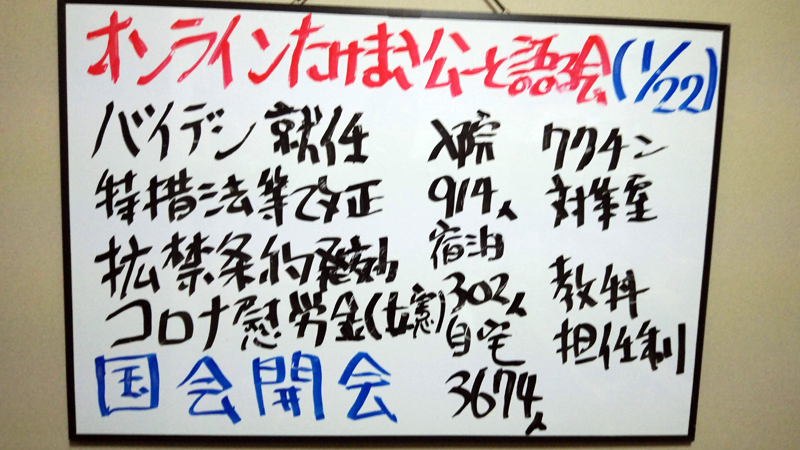 オンラインたけまさ公一と語る会(1/22)
バイデン就任
特措法等改正
拡禁条約発効
コロナ慰労金(立憲)
国会開会
入院
914人
宿泊
302人
自宅
3674人
ワクチン
対策室
教科
担任制